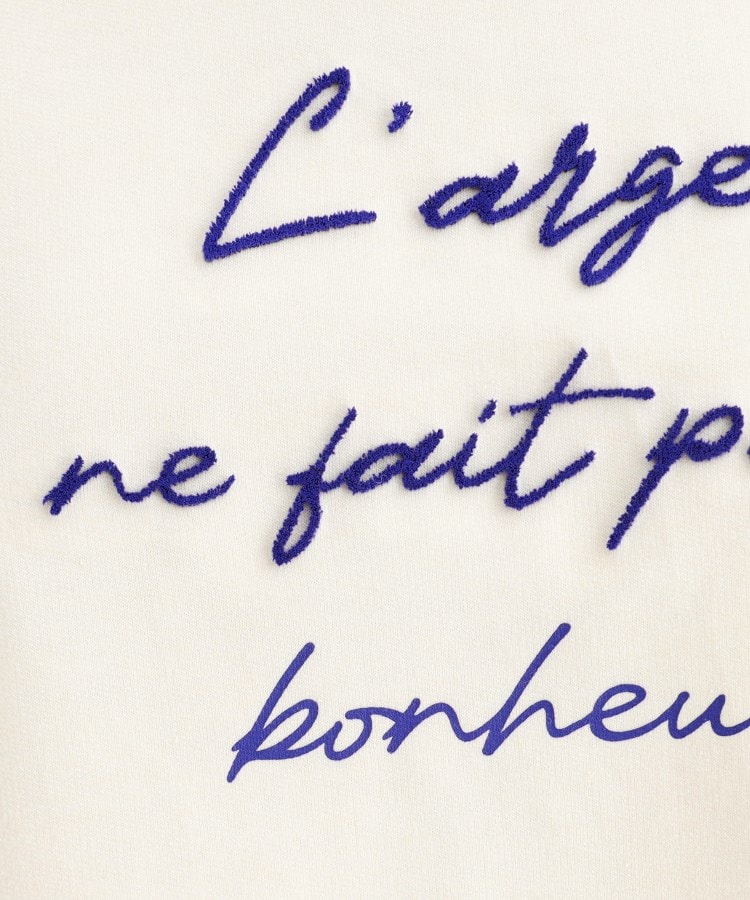 L'arge
ne fait p
bonheu